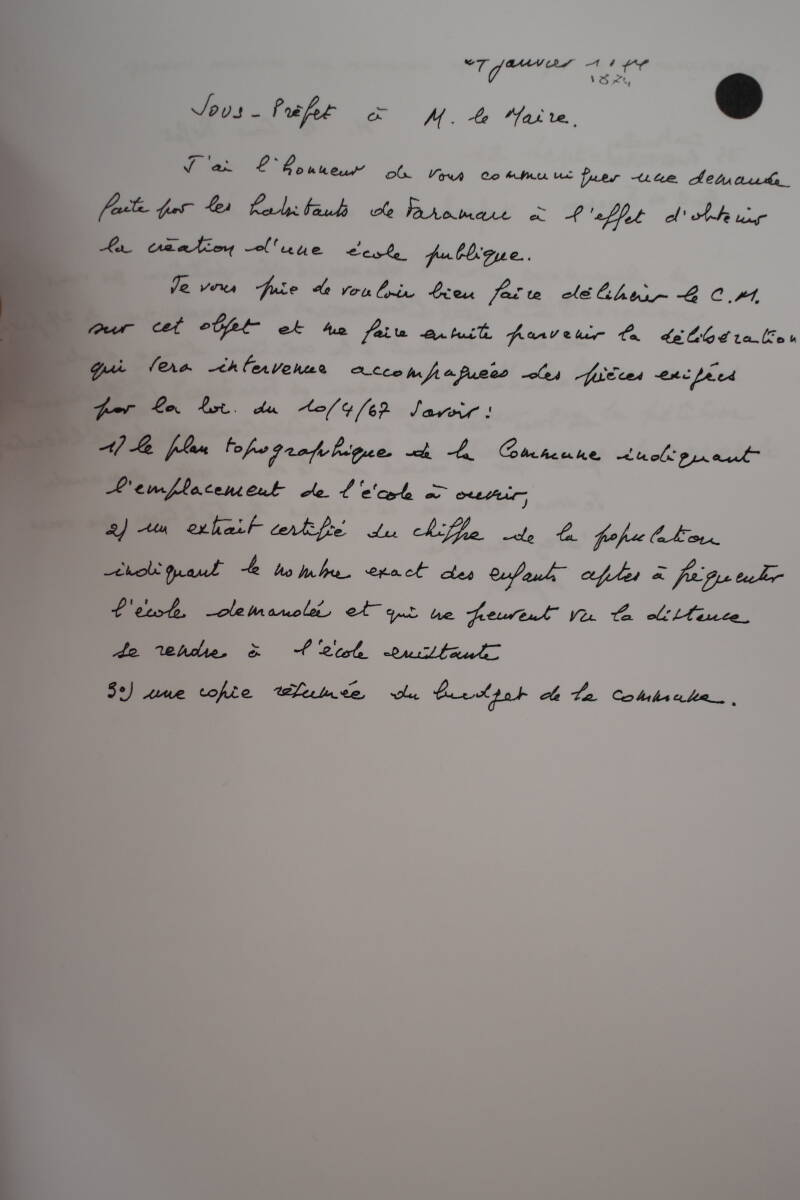 janvier
1874
Sous-Préfet à M. le Maire.
J'ai l'honneur de vous communiquer une demande
faite par les habitants de Faraman à l'effet d'obtenir
la création d'une école publique.
Je vous prie de vouloir bien faire délibérer le C.M.
sur cet objet et me faire ensuite parvenir la délibération
qui sera intervenue accompagnées des pièces exigées
par la loi du 10/4/67 savoir :
1) le plan topographique de la Commune indiquant
l'emplacement de l'école à ouvrir,
2) un extrait certifié du chiffre de la population
indiquant le nombre exact des enfants aptes à fréquenter
l'école demandée et qui ne peuvent vu la distance
se rendre à l'école existante
3°) une copie résumée du budget de la commune.